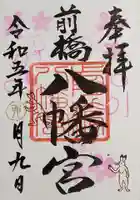 奉拝
前橋
八幡宮
令和五年 月九日